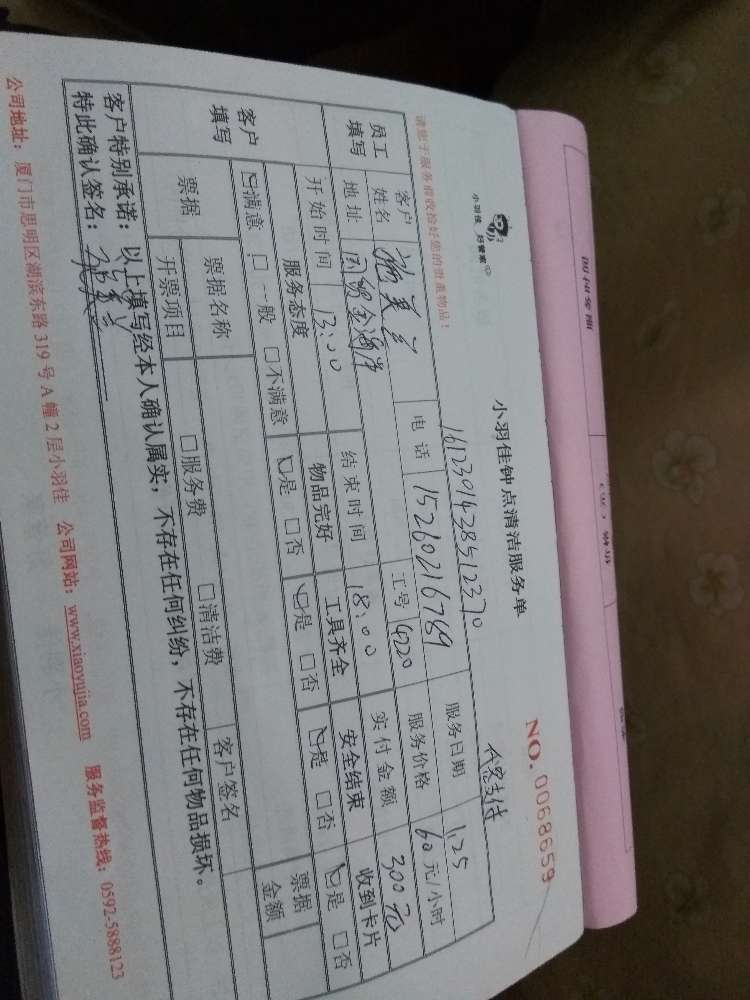 小羽佳 好管家
小羽佳钟点清洁服务单
NO. 0068659
请您于服务前收捡好您的贵重物品!
1612391428512370
代客支付
员工填写
客户姓名
美兰
电话 15260216789
服务日期 1.25
地址 国贸金海岸
工号 4220
服务价格 60元/小时
开始时间 13:00
结束时间 18:00
实付金额 300元
客户填写
服务态度 物品完好 工具齐全 安全结束 收到卡片
☑满意 □一般 □不满意 ☑是 □否 ☑是 □否 ☑是 □否 ☑是 □否
票据
票据名称 □服务费 □清洁费
票据金额
开票项目
客户签名
客户特别承诺:以上填写经本人确认属实,不存在任何纠纷,不存在任何物品损坏。
特此确认签名:
公司地址:厦门市思明区湖滨东路319号A幢2层小羽佳 公司网站:www.xiaoyujia.com 服务监督热线:0592-5888123